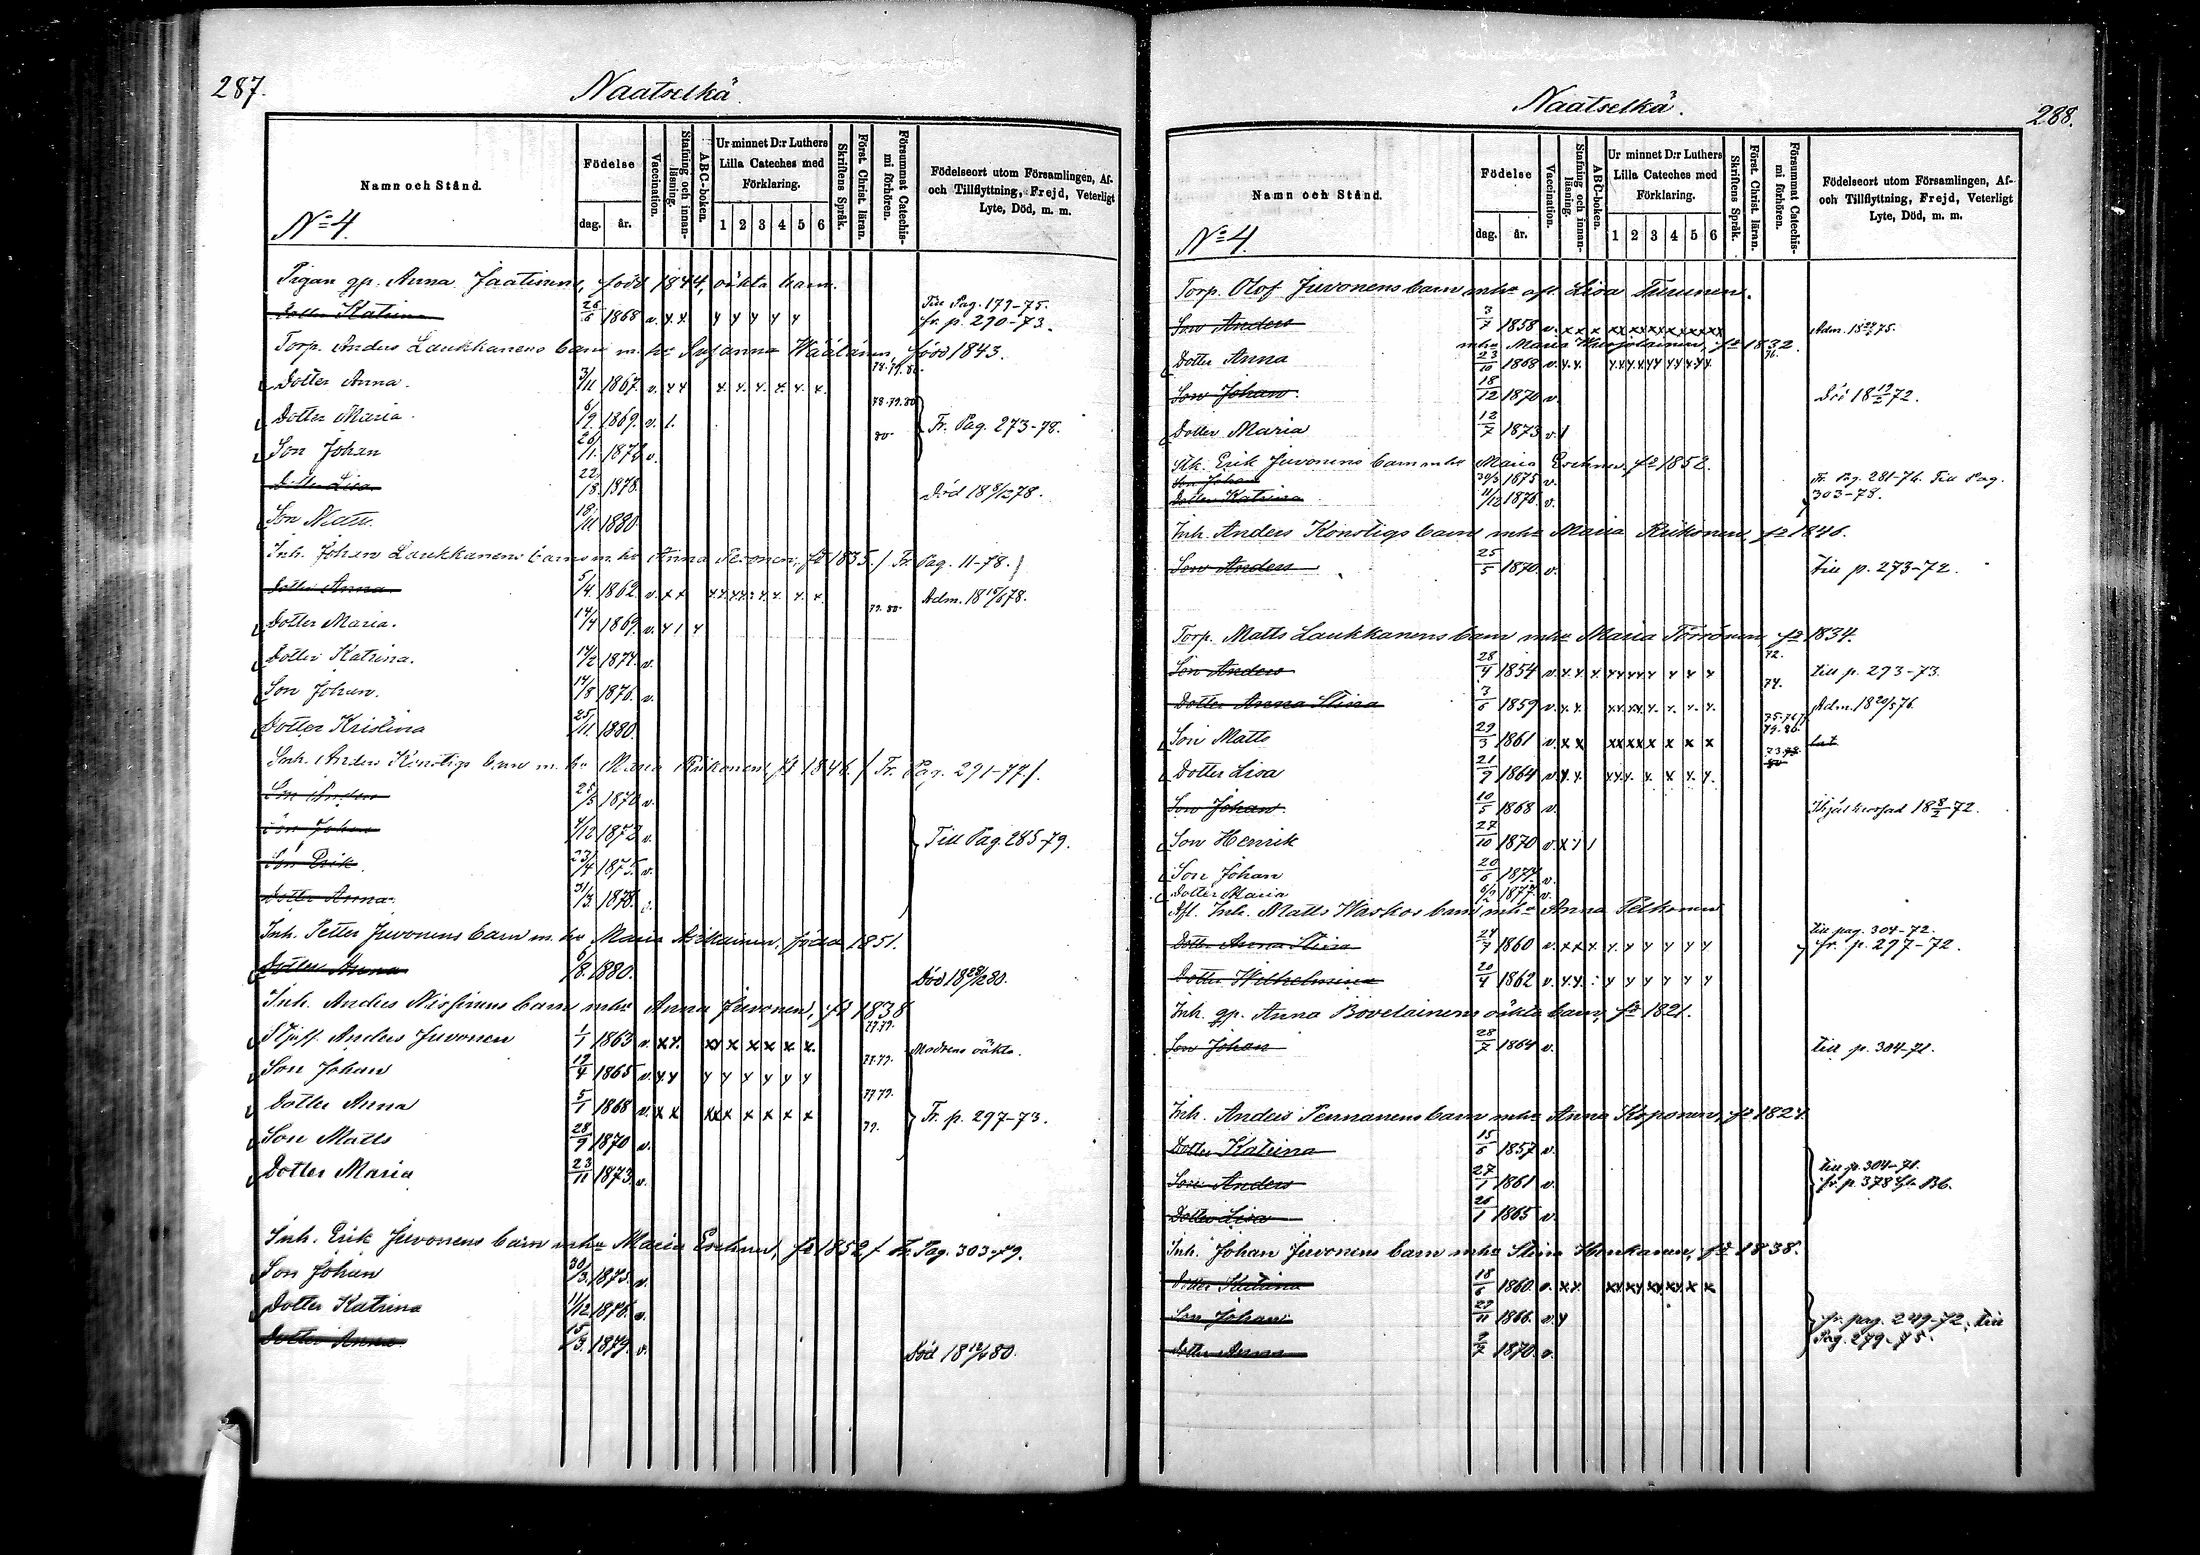 287.
Naatselkä
Namn och Stånd.
Födelse
dag. år.
Vaccination.
Stafning och innanläsning.
ABC-boken.
Ur minnet D:r Luthers Lilla Cateches med Förklaring.
1 2 3 4 5 6
Skriftens Språk.
Först. Christ. läran.
Försummat Catechismi förhören.
Födelseort utom Församlingen, Af- och Tillflyttning, Frejd, Veterligt Lyte, Död, m. m.
No 4.
Pigan gp. Anna Jaatinens, född 1844, oäkta barn.
Dotter Katrina 26/6 1868 v. Till Pag. 179-75. fr. p. 290-73.
Torp. Anders Laukkanens barn m. hu Susanna Väätänen, född 1843.
Dotter Anna. 3/11 1867. v. 78.79.80.
Dotter Maria. 6/9 1869. v. 1. 78.79.80 Fr. Pag. 273-78.
Son Johan 26/11 1872 v. 80.
Dotter Lisa. 22/8 1878. Död 18 8/12 78.
Son Matts. 18/11 1880.
Inh. Johan Laukkanens barn m. hu Anna fd 1835. / Fr. Pag. 11-78.
Dotter Anna. 5/4 1862. v. Adm. 18 78.
Dotter Maria. 14/4 1869. v. 79. 80.
Dotter Katrina. 14/2 1874. v.
Son Johan. 14/8 1876. v.
Dotter Kristina 25/11 1880.
Inh. Anders Konstigs barn m. hu Maria Riikonen, fd 1846. / Fr. Pag. 291-77 /.
Son Anders 25/5 1870 v.
Son Johan 4/12 1872 v. Till Pag. 285-79.
Son Erik. 23/4 1875. v.
Dotter Anna. 31/3 1878. v.
Inh. Petter Juvonens barn m. hu Maria födda 1851.
Dotter Anna 6/8 1880. Död 18 80.
Inh. Anders Nissinens barn mhu Anna Juvonen, fd 1838
Styfs. Anders Juvonen 1/1 1863 v. 77.79. Modrens oäkta.
Son Johan 12/4 1865 v. 77.79.
Dotter Anna 5/1 1868 v. 77.79. Fr. p. 297-73.
Son Matts 28/9 1870 v. 79.
Dotter Maria 23/11 1873 v.
Inh. Erik Juvonens barn mhu Maria Eronen, fd 1852 / Fr. Pag. 303-79.
Son Johan 30/3 1875. v.
Dotter Katrina 11/12 1876. v.
Dotter Anna 15/3 1879. v. Död 18 80.
Naatselkä.
288.
Namn och Stånd.
Födelse
dag. år.
Vaccination.
Stafning och innanläsning.
ABC-boken.
Ur minnet D:r Luthers Lilla Cateches med Förklaring.
1 2 3 4 5 6
Skriftens Språk.
Först. Christ. läran.
Försummat Catechismi förhören.
Födelseort utom Församlingen, Af- och Tillflyttning, Frejd, Veterligt Lyte, Död, m. m.
No 4.
Torp. Olof Juvonens barn mhu afl. Lisa Turunen.
Son Anders 3/7 1858 v. Adm. 18 75.
mhu Maria fd 1832.
Dotter Anna 23/10 1868 v. 76.
Son Johan 18/12 1870 v. Död 18 19/2 72.
Dotter Maria 12/7 1873 v. 1
Erik Juvonens barn mhu Maria Eronen, fd 1852.
Son Johan 30/3 1875 v. Fr. Pag. 281-76. Till Pag.
Dotter Katrina 11/12 1876. v. 303-78.
Inh. Anders Konstigs barn mhu Maria Riikonen, fd 1846.
Son Anders 25/5 1870 v. till p. 273-72.
Torp. Matts Laukkanens barn mhu Maria Törrönen, fd 1834.
Son Anders 28/4 1854 v. 72. till p. 293-73.
Dotter Anna Stina 3/6 1859 v. 74. Adm. 18 20/5 76.
Son Matts 29/3 1861 v.
Dotter Lisa 21/9 1864 v.
Son Johan 10/5 1868 v. Ihjälkrossad 18 8/2 72.
Son Henrik 27/10 1870 v.
Son Johan 20/6 1874 v.
Dotter Maria 1877. v.
Afl. Inh. Matts Waskos barn mhu Anna Pelkonen
Dotter Anna Stina 24/7 1860 v. till pag. 304-72. fr. p. 297-72.
Dotter Wilhelmina 20/4 1862 v.
Inh. gp. Anna Bovelainens oäkta barn, fd 1821.
Son Johan 28/7 1864 v. till p. 304-71.
Inh. Anders Pennanens barn mhu Anna Koponen, fd 1824
Dotter Katrina 15/5 1857 v. till p. 304-71.
Son Anders 27/1 1861 v. fr. p. 378
Dotter Lisa 26/1 1865 v.
Inh. Johan Juvonens barn mhu Stina fd 1838.
Dotter Katrina 18/6 1860. v.
Son Johan 29/11 1866. v. fr. pag. 249-72. till
Dotter Anna 9/7 1870. v. Pag. 279-75.